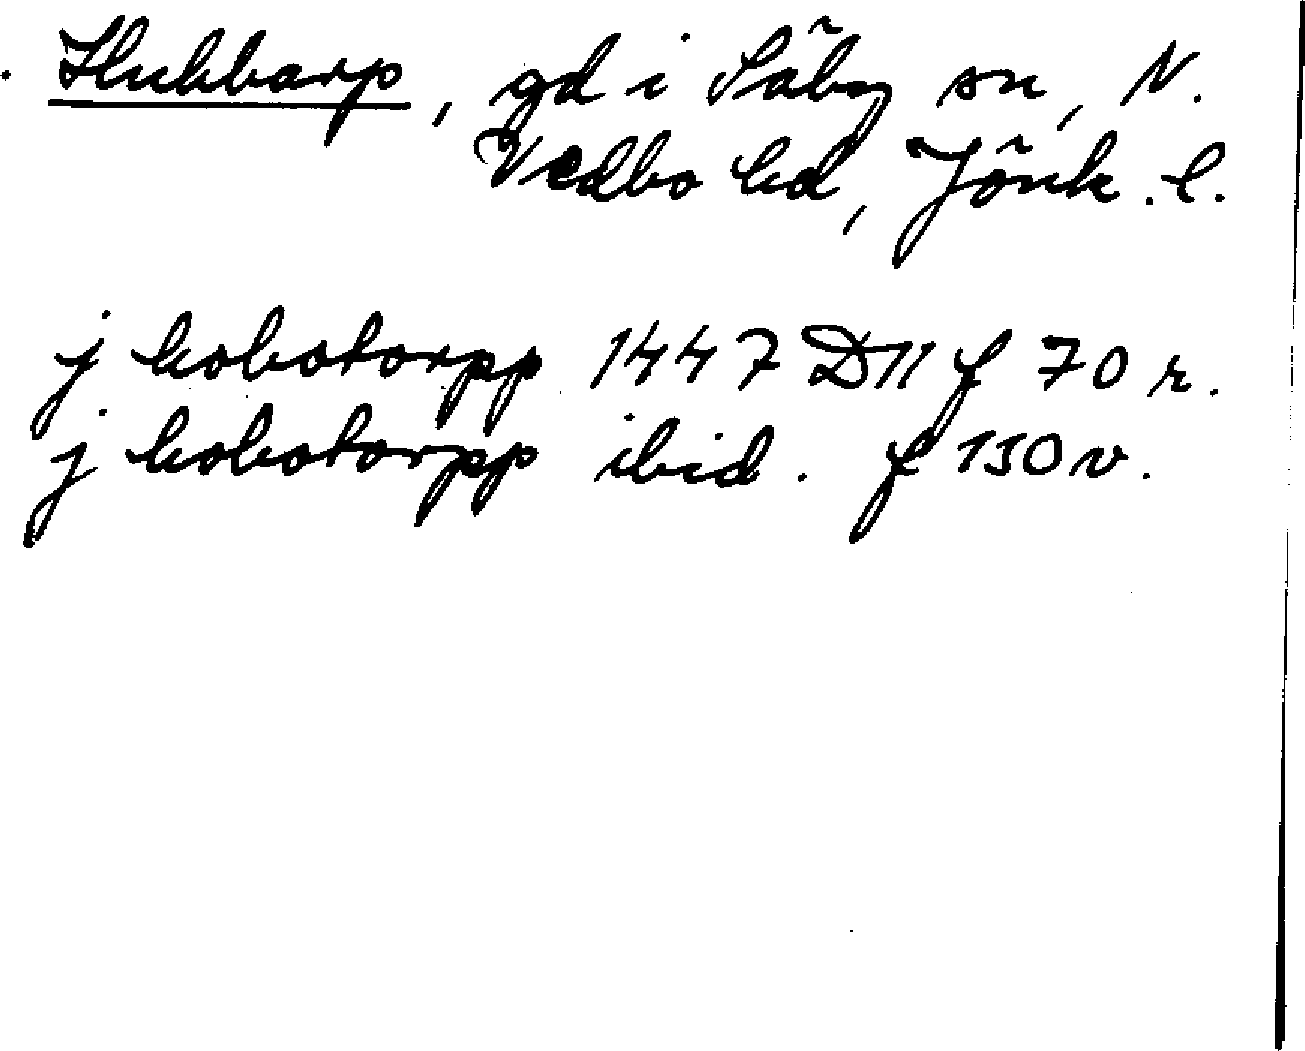 Hubbarp, gd i Säby sn, N.
Vedbo hd, Jönk. l.
j hobotorpp 1447 D11 f 70 r.
j hobotorpp ibid. f 150 v.